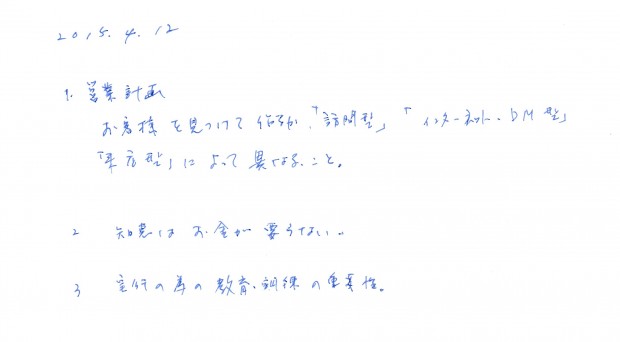 2015.4.12
1. 営業計画
お客様を見つけて 「訪問型」「インターネット・DM型」
「来店型」によって異なること。
2 知恵はお金が要らない。
3 実行の為の教育、訓練の重要性。